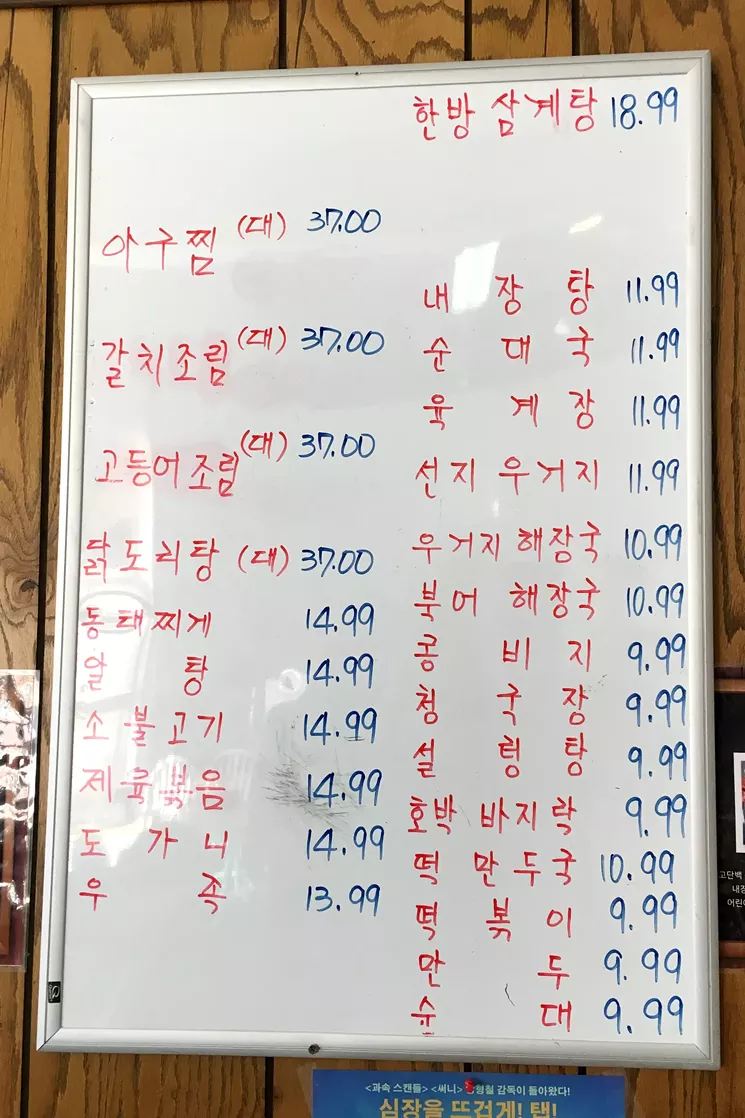 한방 삼계탕 18.99
아구찜 (대) 37.00
갈치조림 (대) 37.00
고등어조림 (대) 37.00
닭도리탕 (대) 37.00
동태찌게 14.99
알탕 14.99
소불고기 14.99
제육볶음 14.99
도가니 14.99
우족 13.99
내장탕 11.99
순대국 11.99
육계장 11.99
선지 우거지 11.99
우거지 해장국 10.99
북어 해장국 10.99
콩비지 9.99
청국장 9.99
설렁탕 9.99
호박 바지락 9.99
떡만두국 10.99
떡볶이 9.99
만두 9.99
순대 9.99
고단백
내장
어린이
<과속 스캔들> <써니> 형철 감독이 돌아왔다!
심장을 뜨겁게! 탭!